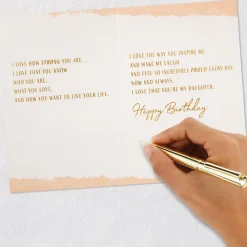 I LOVE HOW STRONG YOU ARE,
I LOVE THAT YOU KNOW
WHO YOU ARE,
WHAT YOU LOVE,
AND HOW YOU WANT TO LIVE YOUR LIFE.
I LOVE THE WAY YOU INSPIRE ME
AND MAKE ME LAUGH,
AND FEEL SO INCREDIBLY PROUD EVERY DAY,
NOW AND ALWAYS.
I LOVE THAT YOU'RE MY DAUGHTER.
Happy Birthday